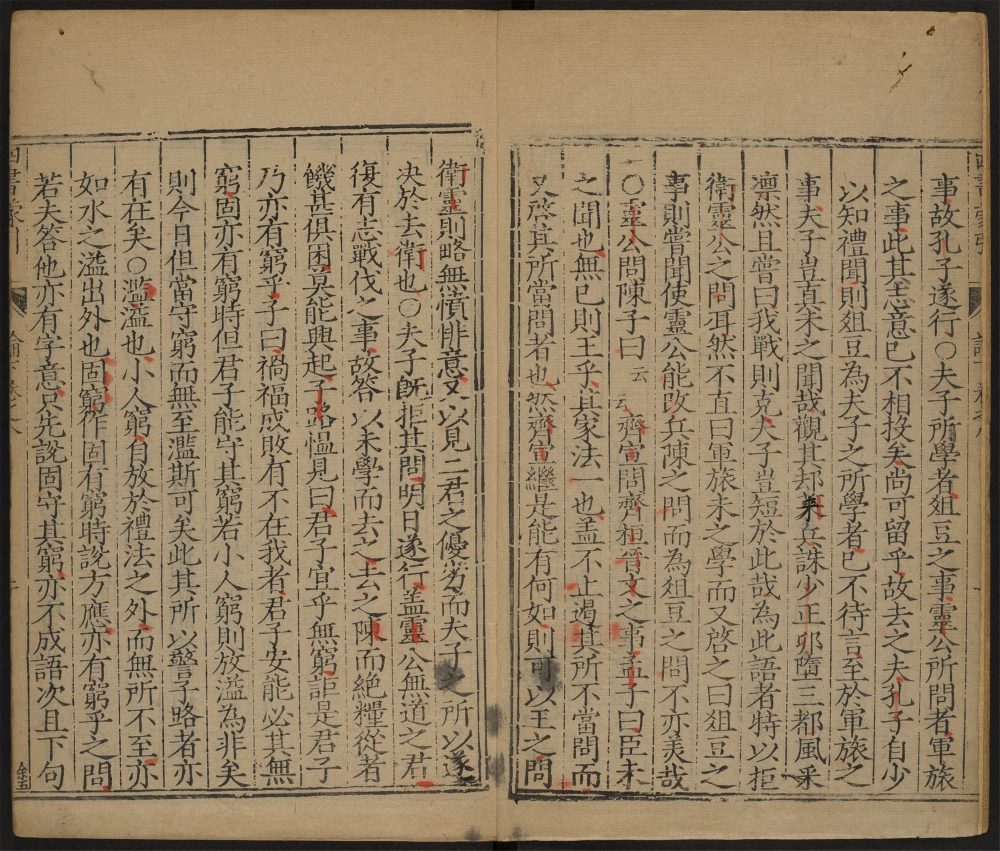 事故孔子遂行○夫子所學者俎豆之事靈公所問者軍旅
之事此其志意已不相投矣尚可留乎故去之夫孔子自少
以知禮聞則俎豆為夫子之所學者已不待言至於軍旅之
事夫子豈真未之聞哉觀其却萊兵誅少正卯墮三都風采
凛然且嘗曰我戰則克夫子豈短於此哉為此語者特以拒
衛靈公之問耳然不直曰軍旅未之學而又啓之曰俎豆之
事則嘗聞使靈公能改兵陳之問而為俎豆之問不亦美哉
○靈公問陳子曰云云齊宣問齊桓晉文之事孟子曰臣未
之聞也無已則王乎其家法一也盖不止遏其所不當問而
又啓其所當問者也然齊宣繼是能有何如則可以王之問
衛靈則略無憤悱意又以見二君之優劣而夫子之所以遂
决於去衛也○夫子既拒其問明日遂行盖靈公無道之君
復有志戰伐之事故答以未學而去之去之陳而絕糧從者
饑甚俱困莫能興起子路慍見曰君子宜乎無窮詎是君子
乃亦有窮乎子曰禍福成敗有不在我者君子安能必其無
窮固亦有窮時但君子能守其窮若小人窮則放溢為非矣
則今日但當守窮而無至濫斯可矣此其所以警子路者亦
有在矣○濫溢也小人窮自放於禮法之外而無所不至亦
如水之溢出外也固窮作固有窮時說方應亦有窮乎之問
若夫答他亦有字意只先說固守其窮亦不成語次且下句
四書蒙引
余五